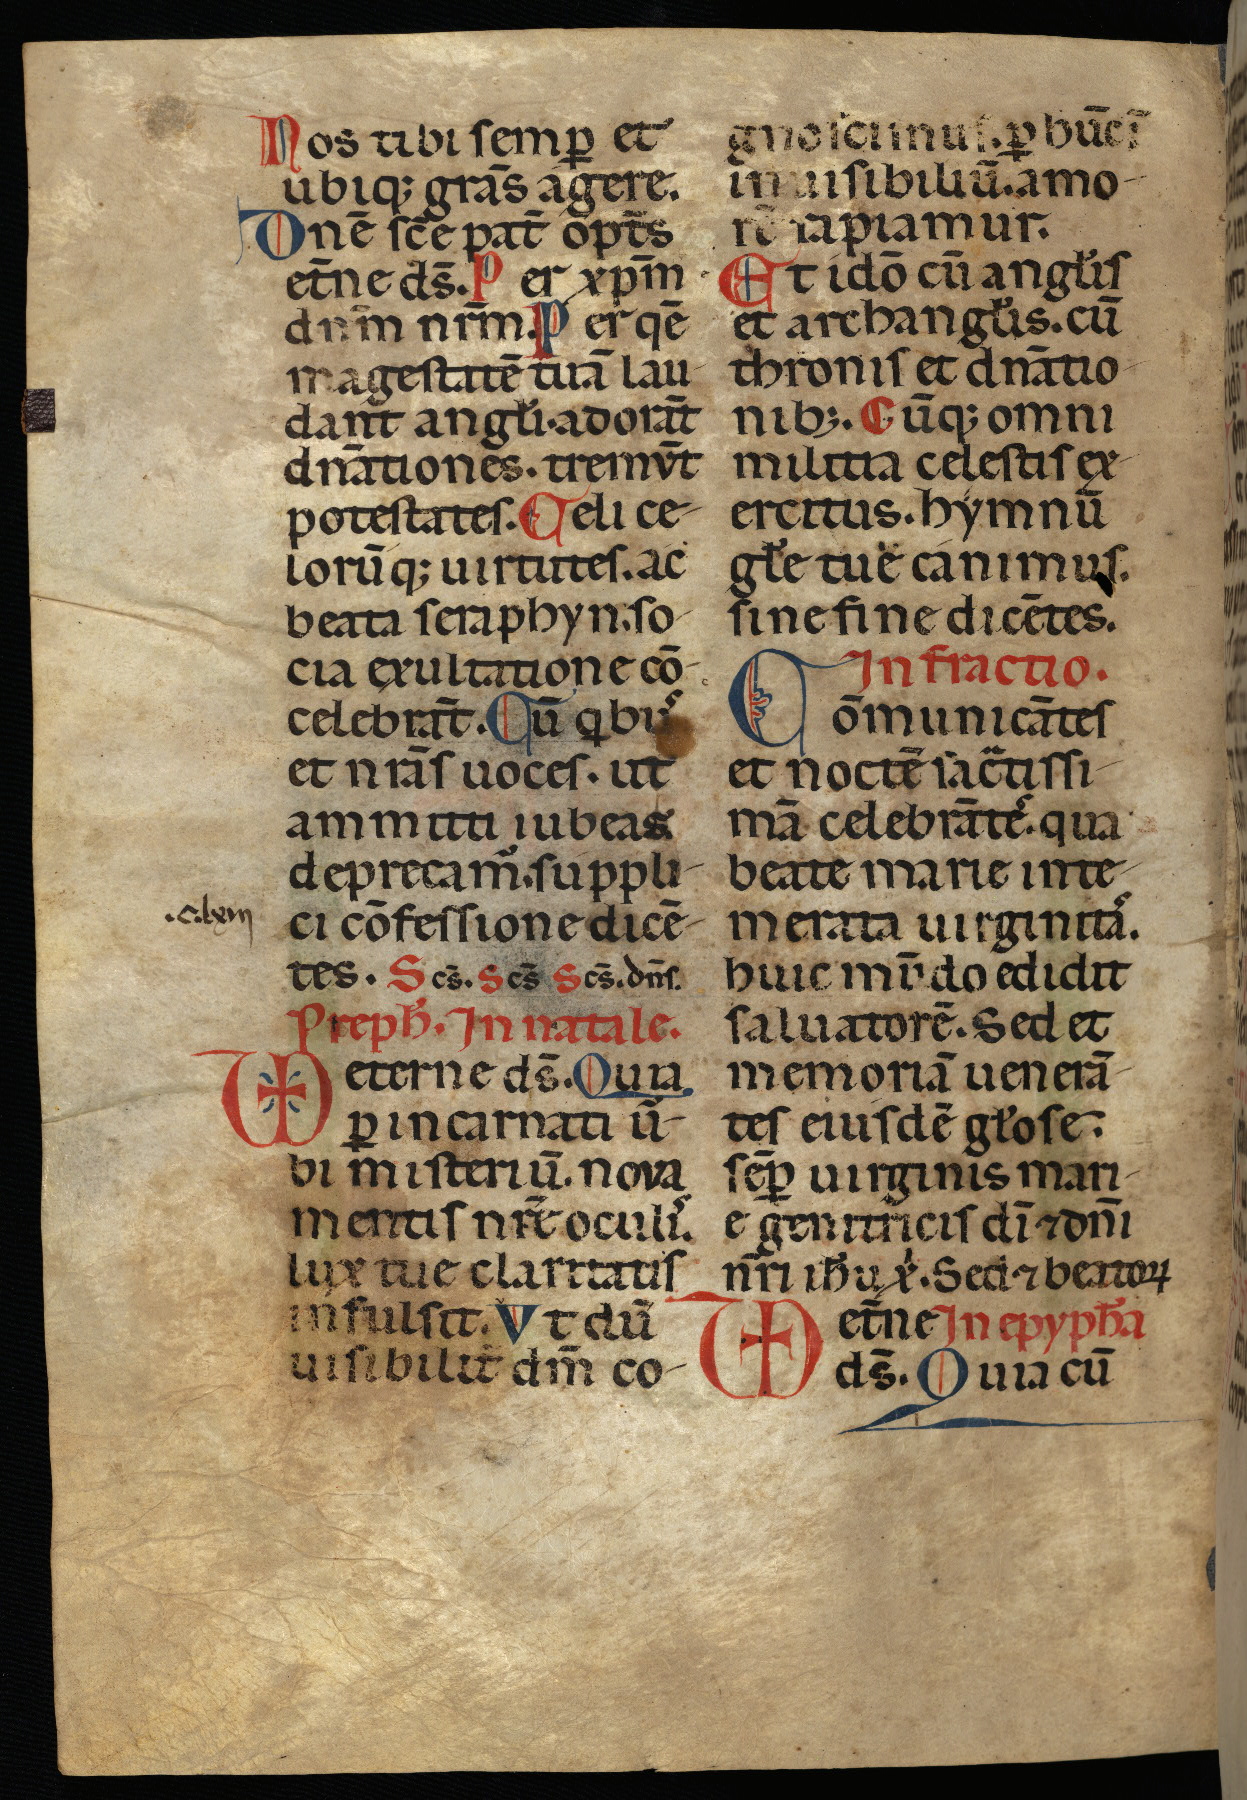 Nos tibi semp̱ et
ubiq; grãs agere.
Dnẽ sc̃e pat̃ opt̃s
et̃ne ds̃. Per xpm̃
dnm̃ nr̃m. Per qẽ
magestatẽ tuã lau-
dant̃ angłi. adorãt
dnãtiones. tremṽt
potestates. Celi ce-
lorũq; uirtutes. ac
beata seraphyn. so-
cia exultatione cõ-
celebrãt. Cũ qibus
et nrãs uoces. ut
ammitti iubeas
deprecam᷒. suppli-
ci cõfessione dicẽ-
.c.lxiii
tes. Scs̃. Scs̃ Scs̃. dñs.
Preph̃. In natale.
VD eterne ds̃. Quia
ꝑ incarnati ũ-
bi misteriũ. nova
mentis nrẽ oculis.
lux tue claritatis
infulsit. Vt dũ
uisibilit̃ dm̃ co-
gnoscimus. ꝑ hũc ĩ
inuisibiliũ. amo-
rẽ rapiamur.
Et idõ cũ angłis
et archangłis. cũ
thronis et dnãtio-
nib;. Cũq; omni
militia celestis ex-
ercitus. hymnũ
głe tuẽ canimus.
sine fine dicẽtes.
In fractio.
Cõmunicãtes
et noctẽ sac̃tissi-
mã celebrãtes. qua
beate marie inte-
merata uirginitas.
huic mũdo edidit
saluatorẽ. Sed et
memoriã uenerã-
tes eiusdẽ głose.
sẽꝑ uirginis mari-
e genitricis dĩ ⁊ dñi
nr̃i ih̃u xi. Sed ⁊ beatoꝝ
VD et̃ne In epyph̃a
ds̃. Quia cũ